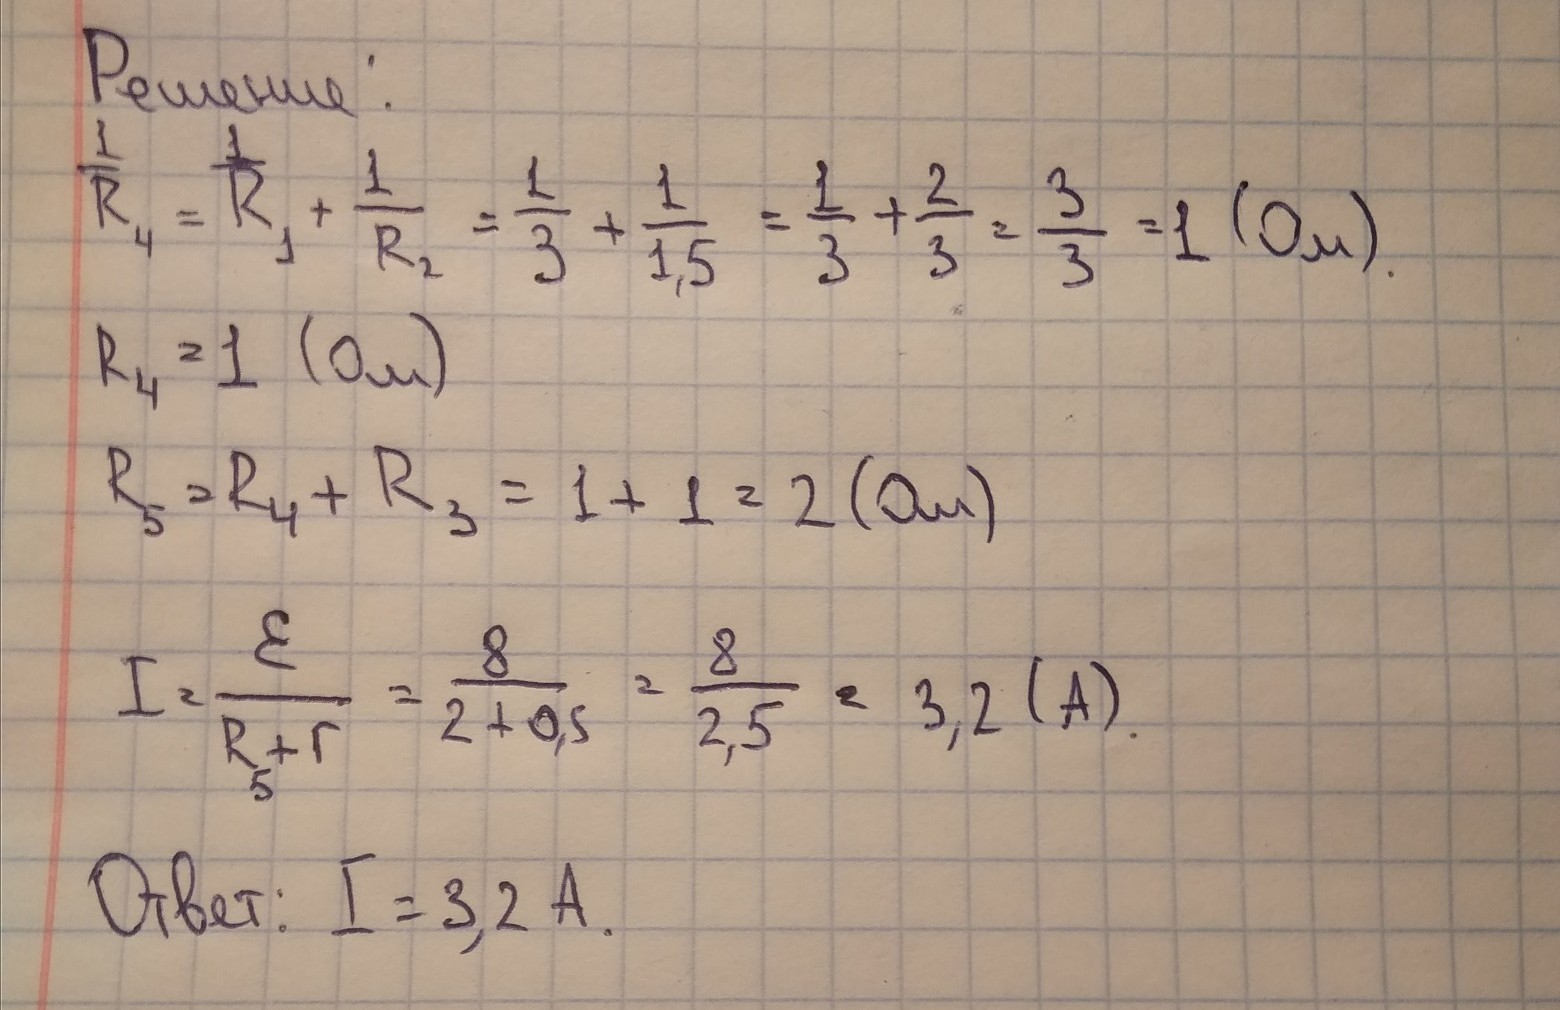 Решение:
1/R₄ = 1/R₁ + 1/R₂ = 1/3 + 1/1,5 = 1/3 + 2/3 = 3/3 = 1 (Ом).
R₄ = 1 (Ом)
R₅ = R₄ + R₃ = 1 + 1 = 2 (Ом)
I = ε/(R₅+r) = 8/(2+0,5) = 8/2,5 = 3,2 (А).
Ответ: I = 3,2 А.